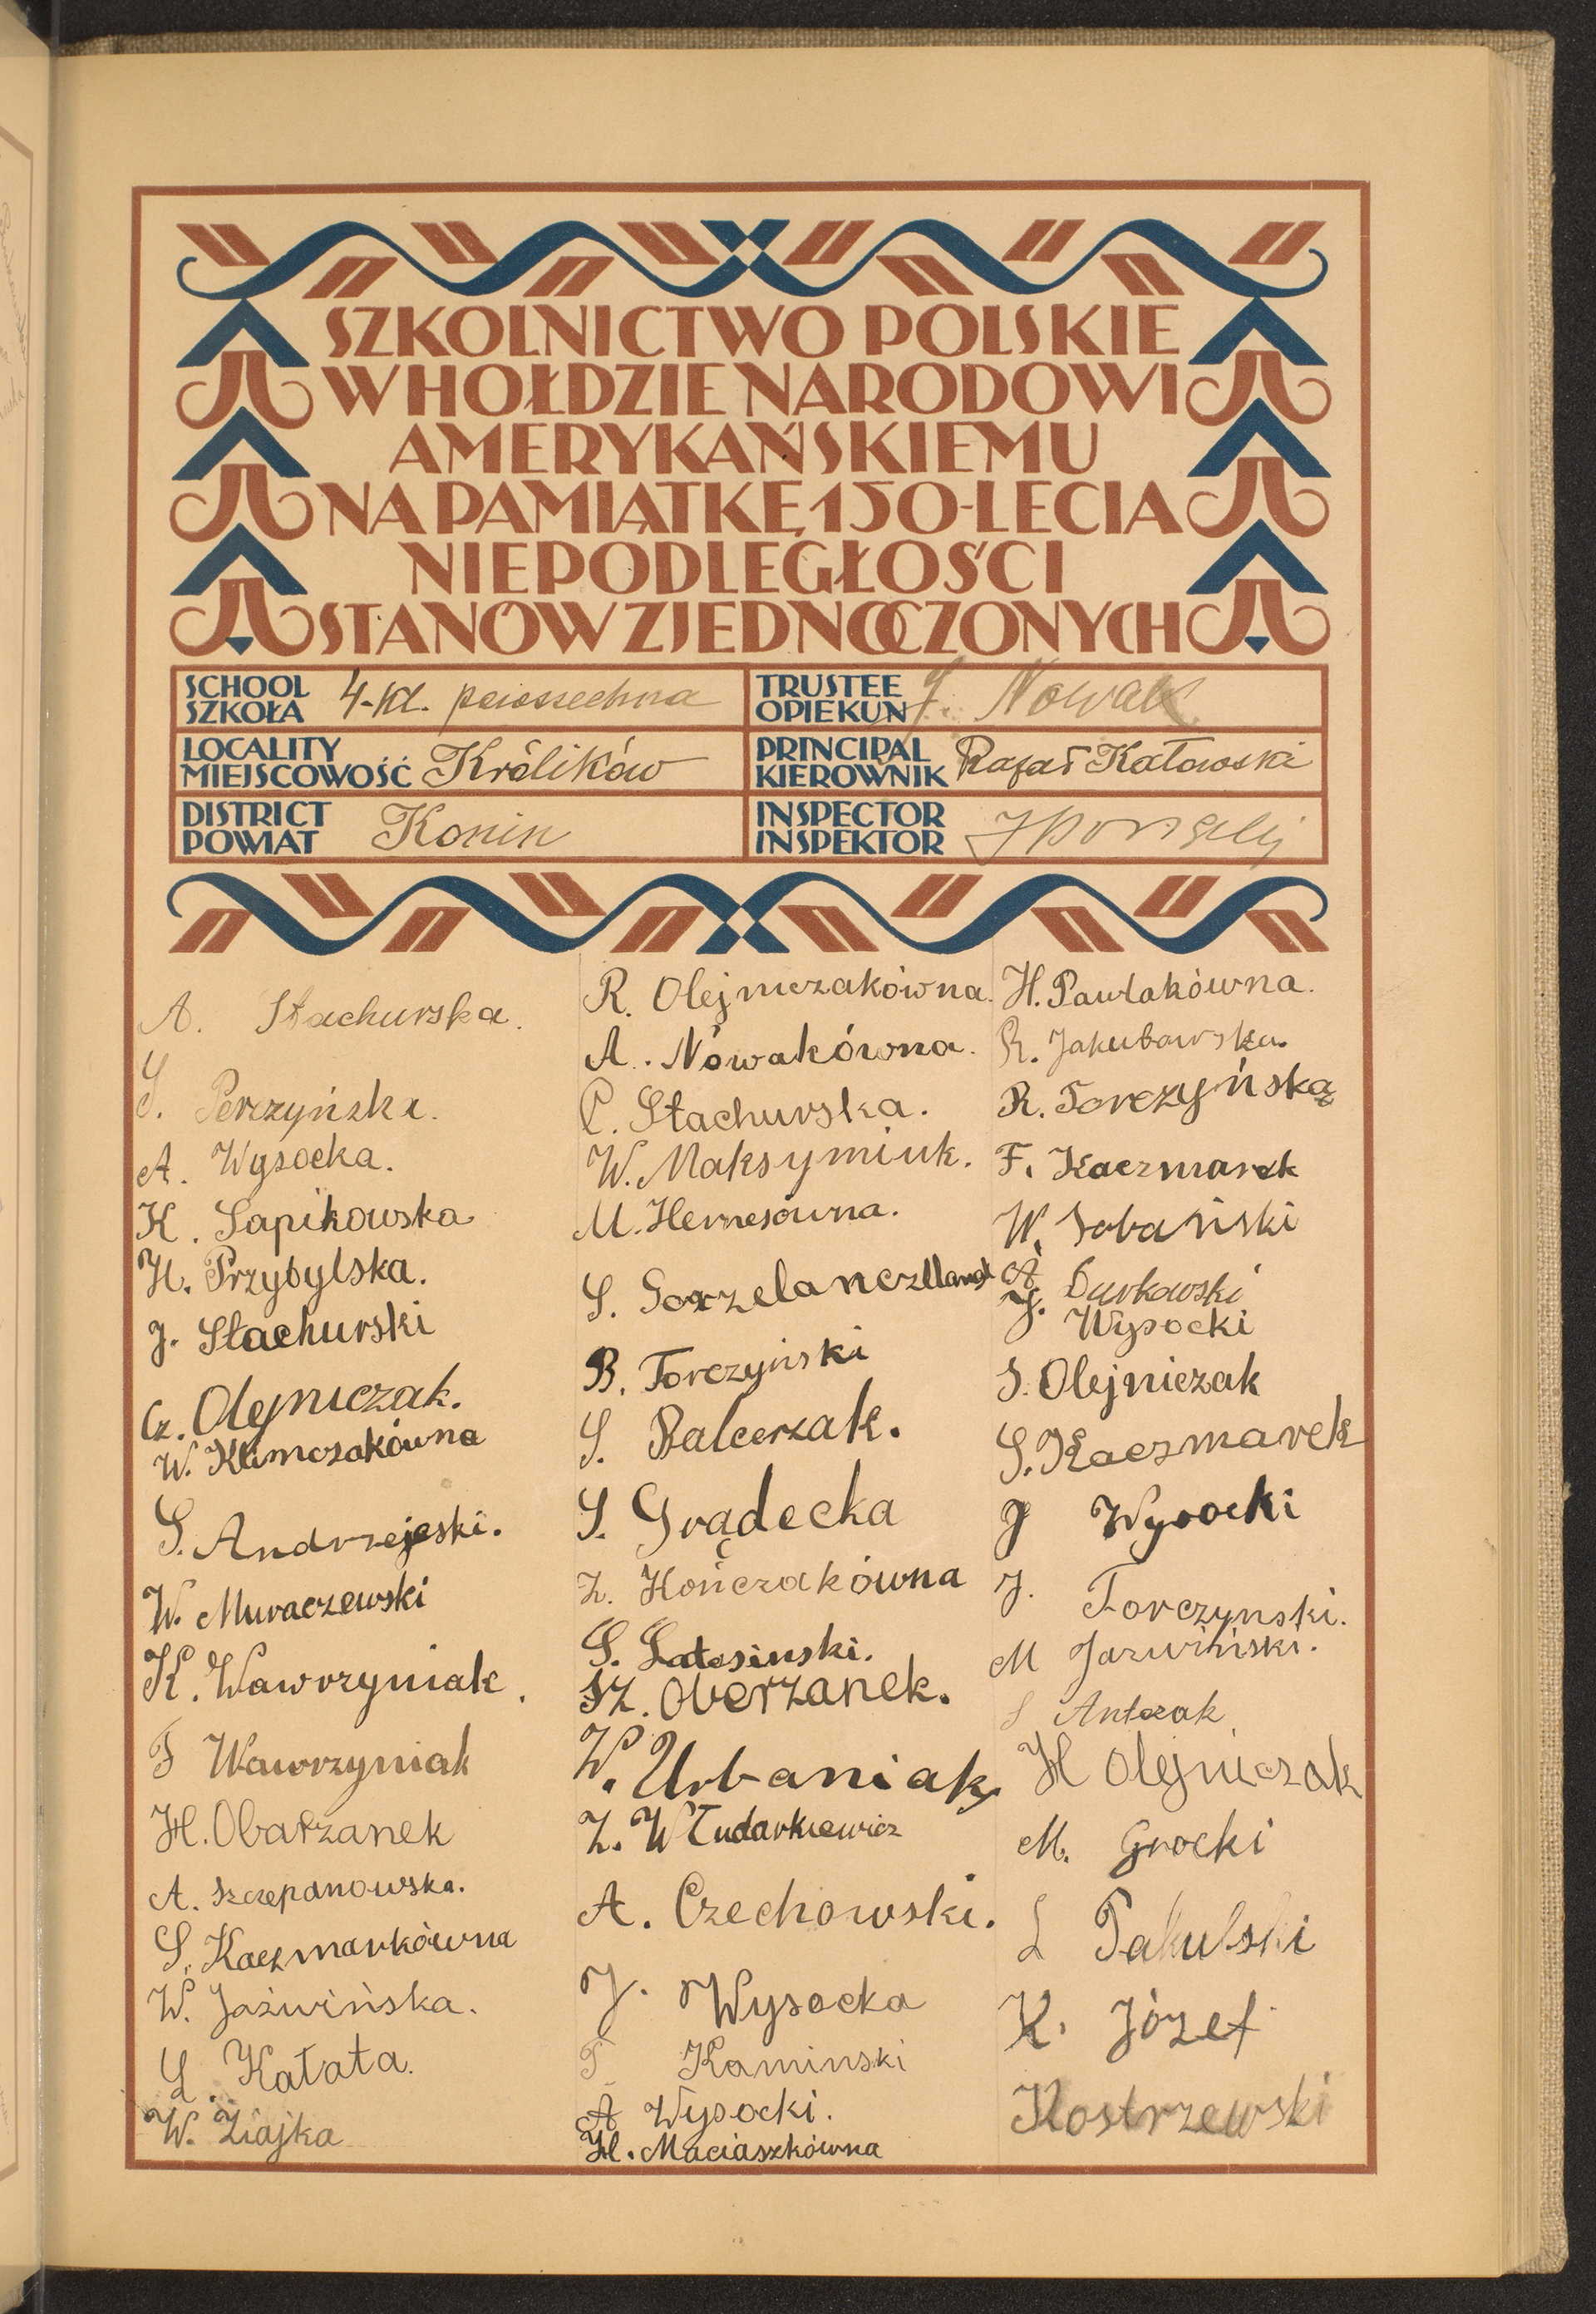 SZKOLNICTWO POLSKIE
W HOŁDZIE NARODOWI
AMERYKAŃSKIEMU
NA PAMIĄTKĘ 150-LECIA
NIEPODLEGŁOŚCI
STANÓW ZJEDNOCZONYCH
SCHOOL
SZKOŁA 4-kl. powszechna
LOCALITY
MIEJSCOWOŚĆ Królików
DISTRICT
POWIAT Konin
TRUSTEE
OPIEKUN J. Nowak
PRINCIPAL
KIEROWNIK Rafał Katowski
INSPECTOR
INSPEKTOR
A. Stachurska.
S. Perczyńska.
A. Wysocka.
K. Sapikowska
H. Przybylska.
J. Stachurski
Cz. Olejniczak.
W. Klimczakówna
S. Andrzejeski.
W. Muraczewski
K. Wawrzyniak.
F Wawrzyniak
H. Obarzanek
A. Szczepanowska.
S. Kaczmarkówna
W. Jaźwińska.
L. Katata.
W. Ziajka
R. Olejniczakówna.
A. Nowakówna.
C. Stachurska.
W. Maksymiuk.
M. Hernesówna.
S.
B. Torczyński
S. Balcerzak.
S. Grądecka
Z. Kończakówna
S. Latosinski.
Sz. Oberzanek.
W. Urbaniak
Z. Włudarkiewicz
A. Czechowski.
J. Wysocka
T Kaminski
A Wysocki.
H. Maciaszkówna
H. Pawlakówna.
R. Jakubowska.
R. Torczyńską
F. Kaczmarek
W. Sobański
A. Burkowski
J. Wysocki
S. Olejniczak
S. Kaczmarek
J Wysocki
J. Torczynski.
M Jazwiński.
S Antczak
H Olejniczak
M. Grocki
L Pakulski
K. Józef
Kostrzewski